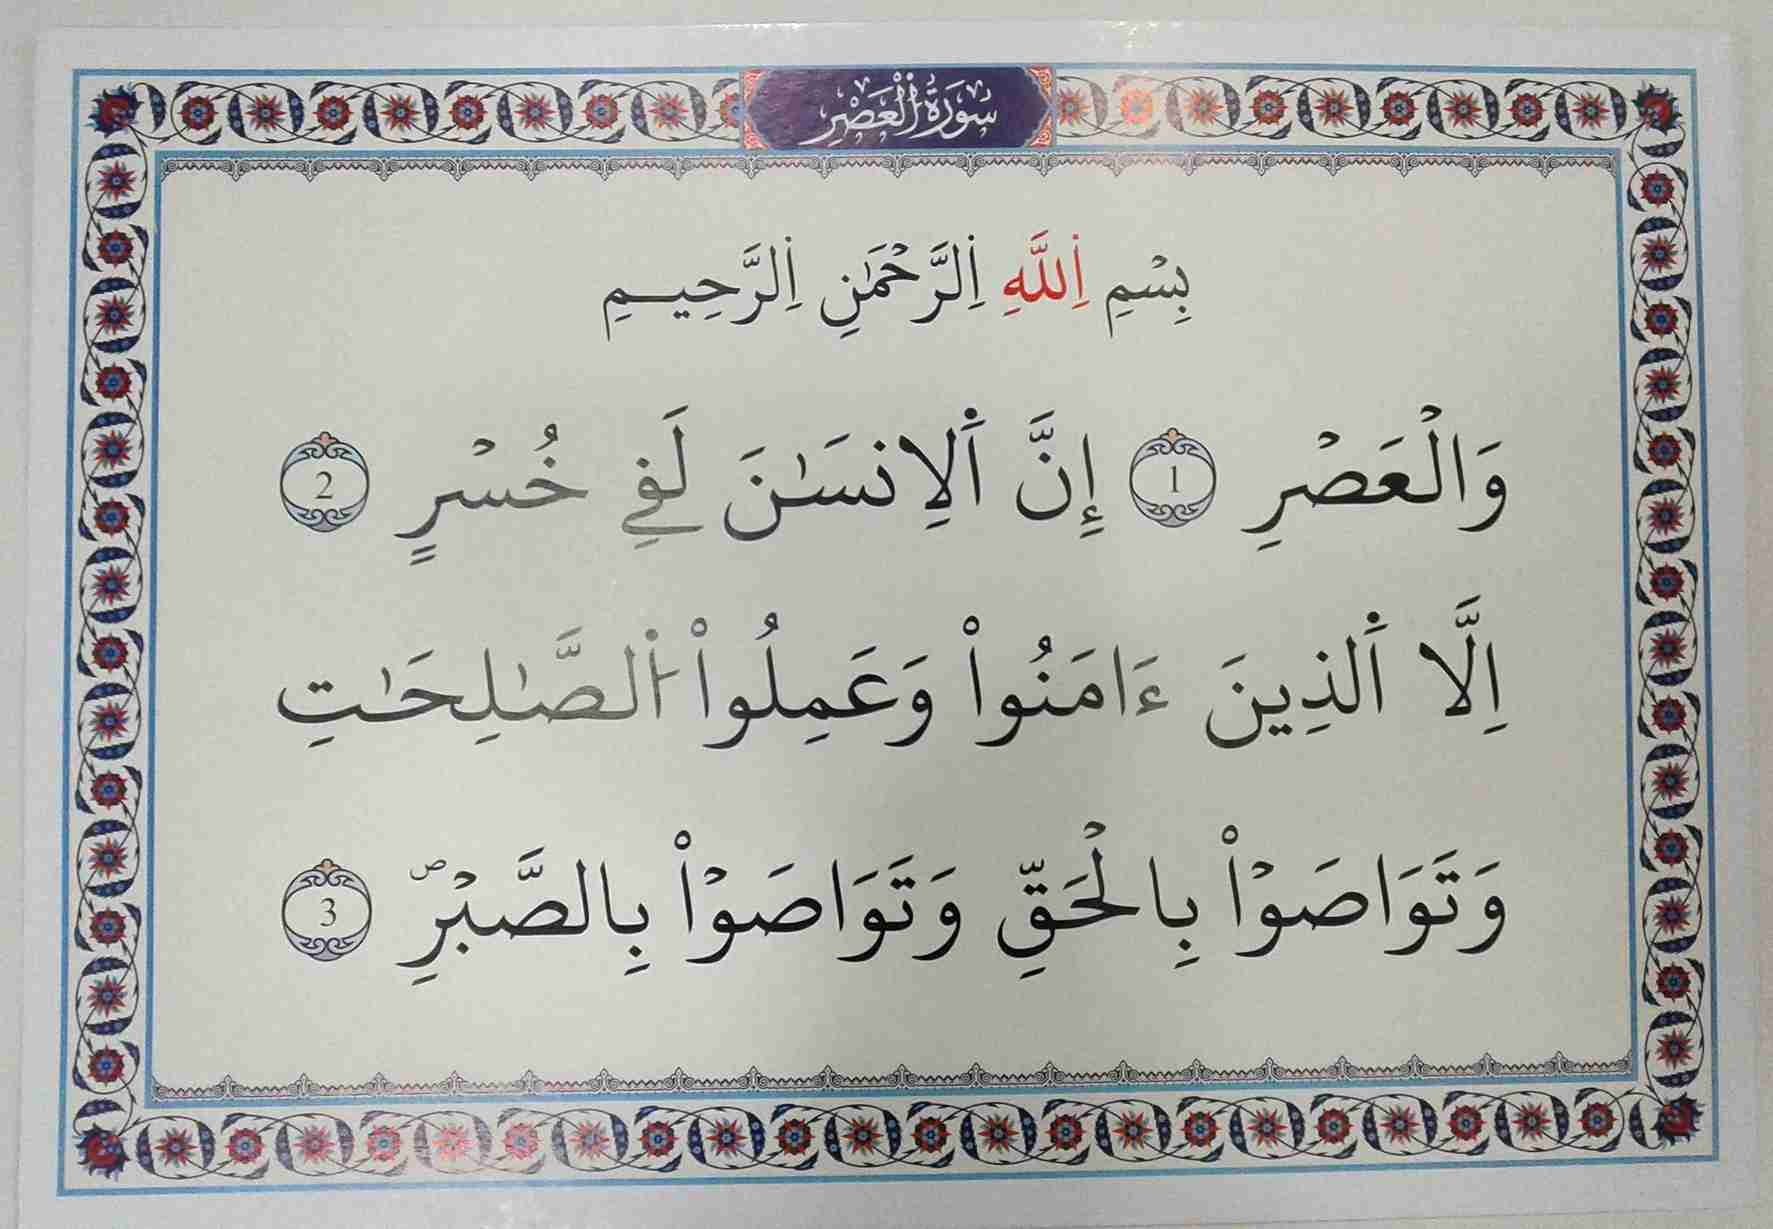 سُورَةُ الْعَصْرِ
بِسْمِ اِ۬للَّهِ اِ۬لرَّحْمَٰنِ اِ۬لرَّحِيمِ
وَالْعَصْرِ 1 إِنَّ اَ۬لِانسَٰنَ لَفِے خُسْرٍ 2
اِلَّا اَ۬لذِينَ ءَامَنُواْ وَعَمِلُواْ اُ۬لصَّٰلِحَٰتِ
وَتَوَاصَوْاْ بِالْحَقِّ وَتَوَاصَوْاْ بِالصَّبْرِۖ 3